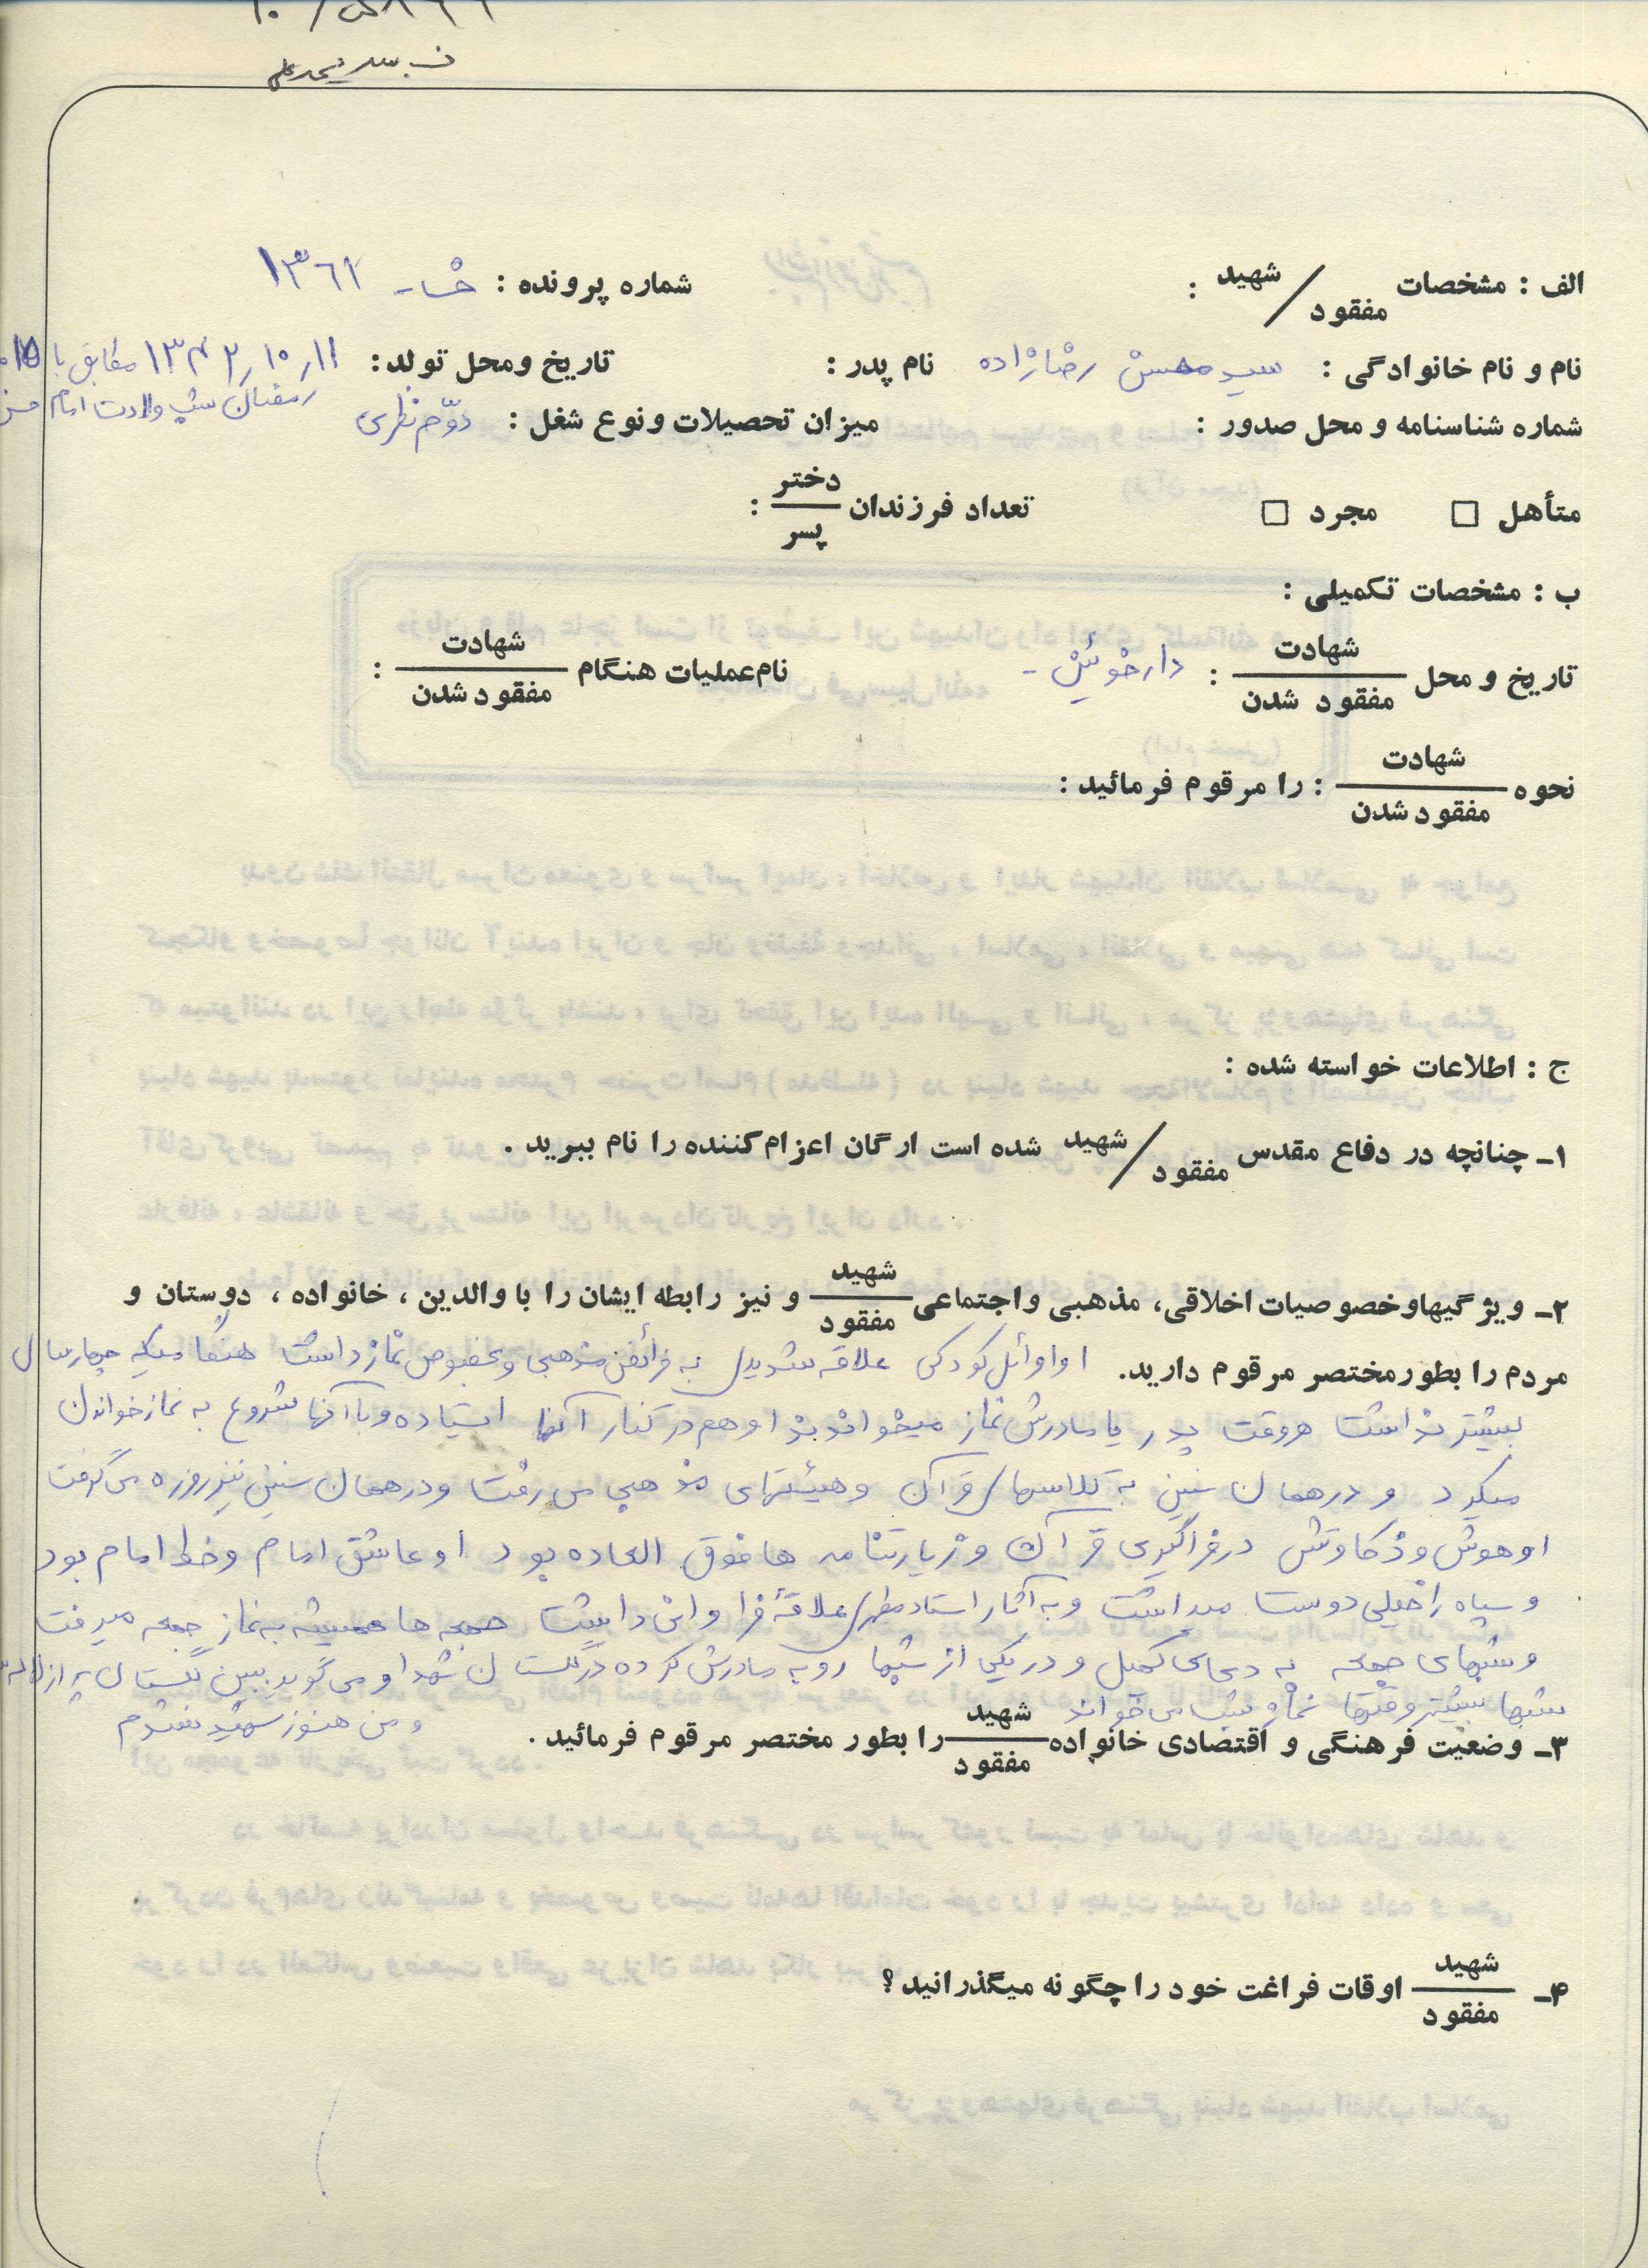 الف : مشخصات شهید / مفقود :
شماره پرونده : خ‍ـ ۱۳۶۱
نام و نام خانوادگی : سید محسن رضازاده نام پدر : تاریخ ومحل تولد : ۱۳۴۲٫۱۰٫۱۱ مطابق با ۱۵
رمضان شب ولادت امام حسن
شماره شناسنامه و محل صدور : میزان تحصیلات و نوع شغل : دوّم نظری
متأهل □ مجرد □ تعداد فرزندان دختر / پسر :
ب : مشخصات تکمیلی :
تاریخ و محل شهادت / مفقود شدن : دارخوئین - نام عملیات هنگام شهادت / مفقود شدن :
نحوه شهادت / مفقود شدن : را مرقوم فرمائید :
ج : اطلاعات خواسته شده :
۱ـ چنانچه در دفاع مقدس شهید / مفقود شده است ارگان اعزام کننده را نام ببرید .
۲ـ ویژگیهاوخصوصیات اخلاقی، مذهبی واجتماعی شهید / مفقود و نیز رابطه ایشان را با والدین ، خانواده ، دوستان و
مردم را بطور مختصر مرقوم دارید. او اوائل کودکی علاقه شدیدی به فرائض مذهبی و بخصوص نماز داشت هنگامیکه چهارسال
بیشتر نداشت هروقت پدر یا مادرش نماز میخواندند او هم در کنار آنها ایستاده و با آنها شروع به نماز خواندن
میکرد و در همان سنین به کلاسهای قرآن و هیئتهای مذهبی می رفت و در همان سنین نیز روزه می گرفت
او هوش و ذکاوتش در فراگیری قرآن و زیارتنامه ها فوق العاده بود او عاشق امام و خط امام بود
و سپاه را خیلی دوست میداشت و به آثار استاد مطهری علاقهٔ فراوانی داشت جمعه ها همیشه به نماز جمعه میرفت
و شبهای جمعه به دعای کمیل و در یکی از شبها رو به مادرش کرده در گلستان شهدا و می گوید ببین گلستان پر از لاله
شبها بیشتر وقتها نماز شب می خواند و من هنوز شهید نشدم
۳ـ وضعیت فرهنگی و اقتصادی خانواده شهید / مفقود را بطور مختصر مرقوم فرمائید .
۴ـ شهید / مفقود اوقات فراغت خود را چگونه میگذرانید ؟